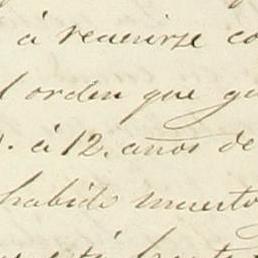 á reunirse co
l orden que gu
. á 12. años de
habido muerto
está